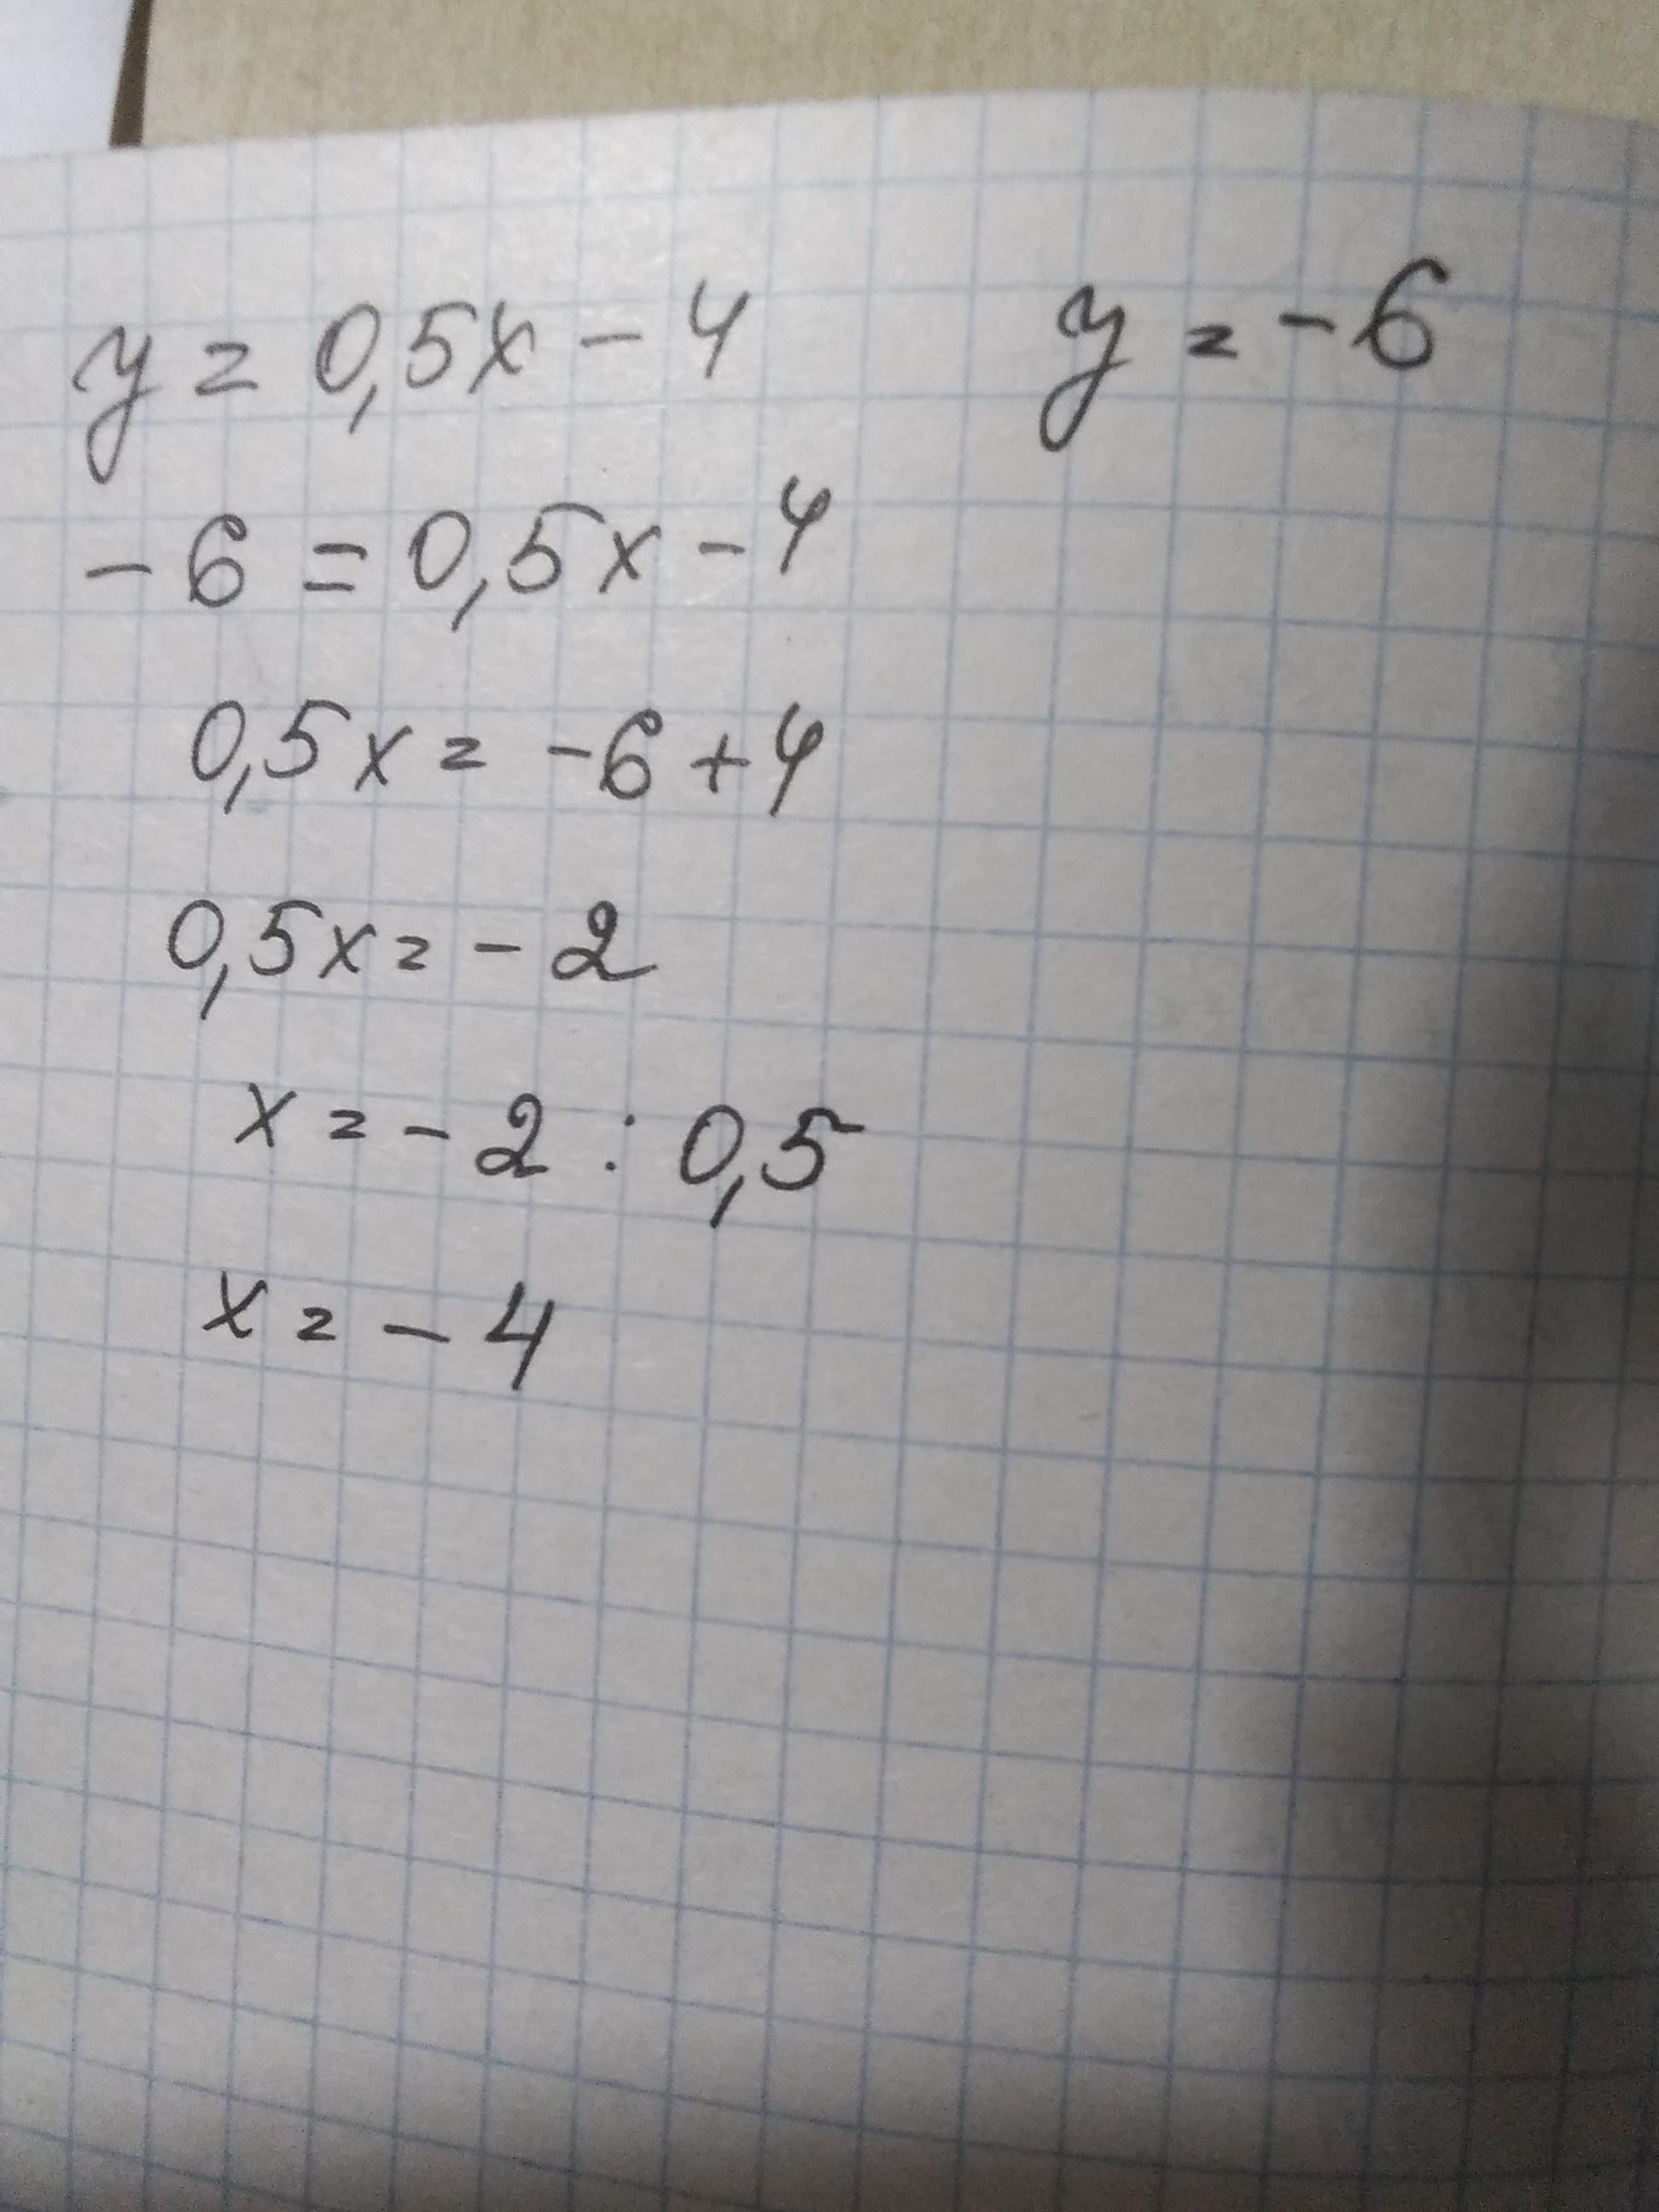 y = 0,5x - 4 y = -6
-6 = 0,5x - 4
0,5x = -6 + 4
0,5x = -2
x = -2 : 0,5
x = -4